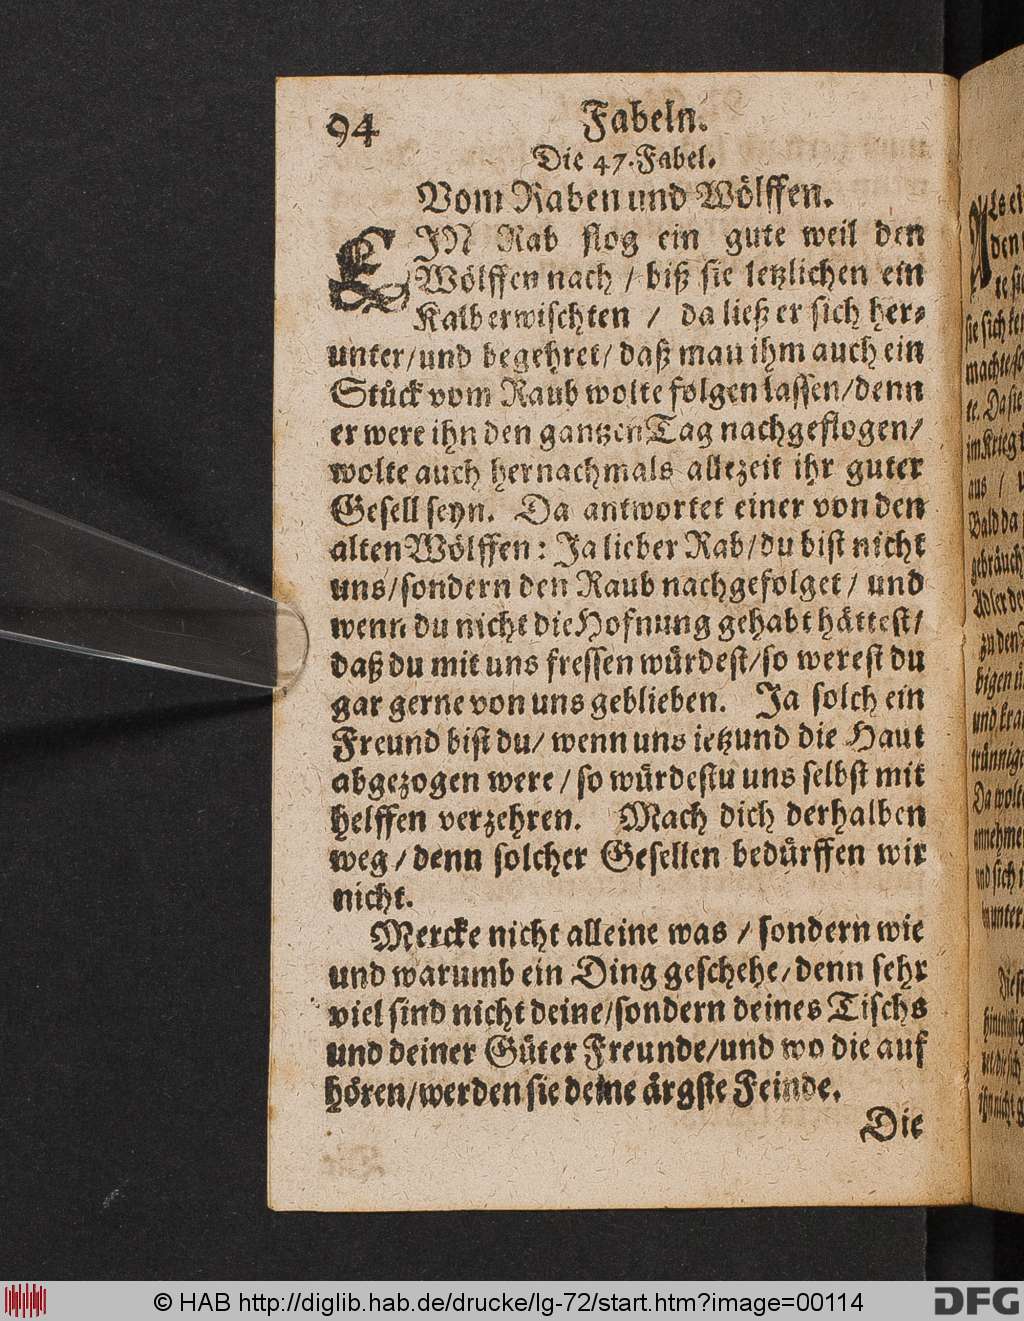 94
Fabeln.
Die 47. Fabel.
Vom Raben und Wölffen.
EIN Rab flog ein gute weil den
Wölffen nach / biß sie letzlichen ein
Kalb erwischten / da ließ er sich her-
unter/und begehret/ daß man ihm auch ein
Stück vom Raub wolte folgen lassen/denn
er were ihn den gantzen Tag nachgeflogen/
wolte auch hernachmals allezeit ihr guter
Gesell seyn. Da antwortet einer von den
alten Wölffen: Ja lieber Rab/du bist nicht
uns/sondern den Raub nachgefolget/ und
wenn du nicht die Hofnung gehabt hättest/
daß du mit uns fressen würdest/so werest du
gar gerne von uns geblieben. Ja solch ein
Freund bist du/ wenn uns ietzund die Haut
abgezogen were / so würdestu uns selbst mit
helffen verzehren. Mach dich derhalben
weg / denn solcher Gesellen bedürffen wir
nicht.
Mercke nicht alleine was / sondern wie
und warumb ein Ding geschehe/denn sehr
viel sind nicht deine/sondern deines Tischs
und deiner Güter Freunde/und wo die auf
hören/werden sie deine ärgste Feinde.
Die
© HAB http://diglib.hab.de/drucke/lg-72/start.htm?image=00114
DFG